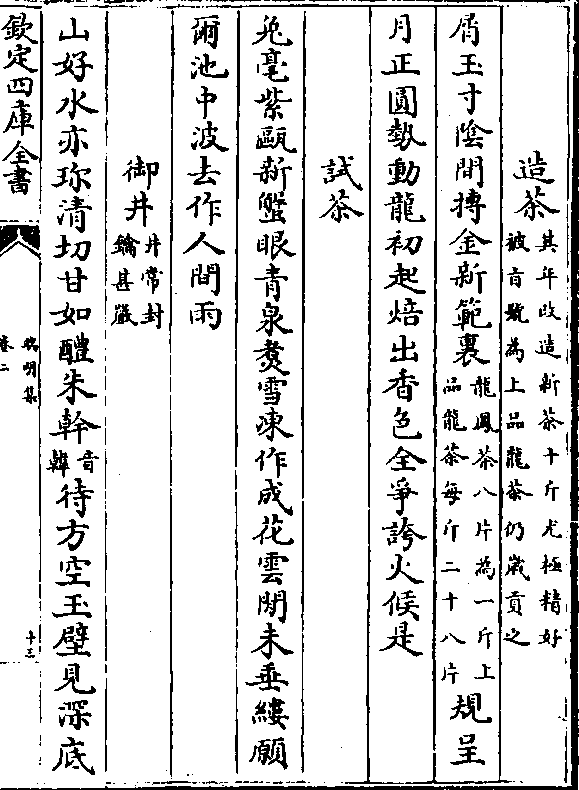 造茶其年改造新茶十斤尤極精好被旨號為上品龍茶仍歲貢之
屑玉寸陰間搏金新範裏龍鳳茶八片為一斤上品龍茶每斤二十八片規呈
月正圓勢動龍初起焙出香色全爭誇火候是
試茶
兔毫紫甌新蟹眼青泉煑雪凍作成花雲閒未垂縷願
爾池中波去作人間雨
御井井常封鑰甚嚴
山好水亦珍清切甘如醴朱幹音韓待方空玉壁見深底
欽定四庫全書
卷二
十三